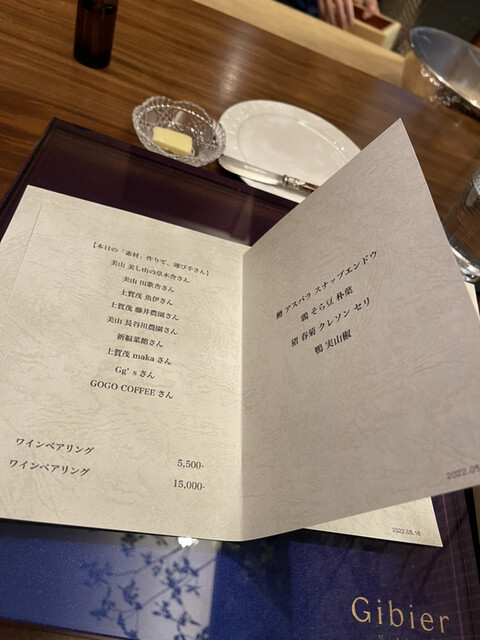 【本日の「素材」作りて、運び手さん】
美山 美し山の草木舎さん
美山 田歌舎さん
上賀茂 魚伊さん
上賀茂 藤井農園さん
美山 長谷川農園さん
新福菜館さん
上賀茂 maka さん
Gg’sさん
GOGO COFFEE さん
ワインペアリング 5,500-
ワインペアリング 15,000-
アスパラ スナップエンドウ
そら豆 朴葉
猪 春菊 クレソン セリ
鴨 実山椒
2022.05
2022.05.16
Gibier